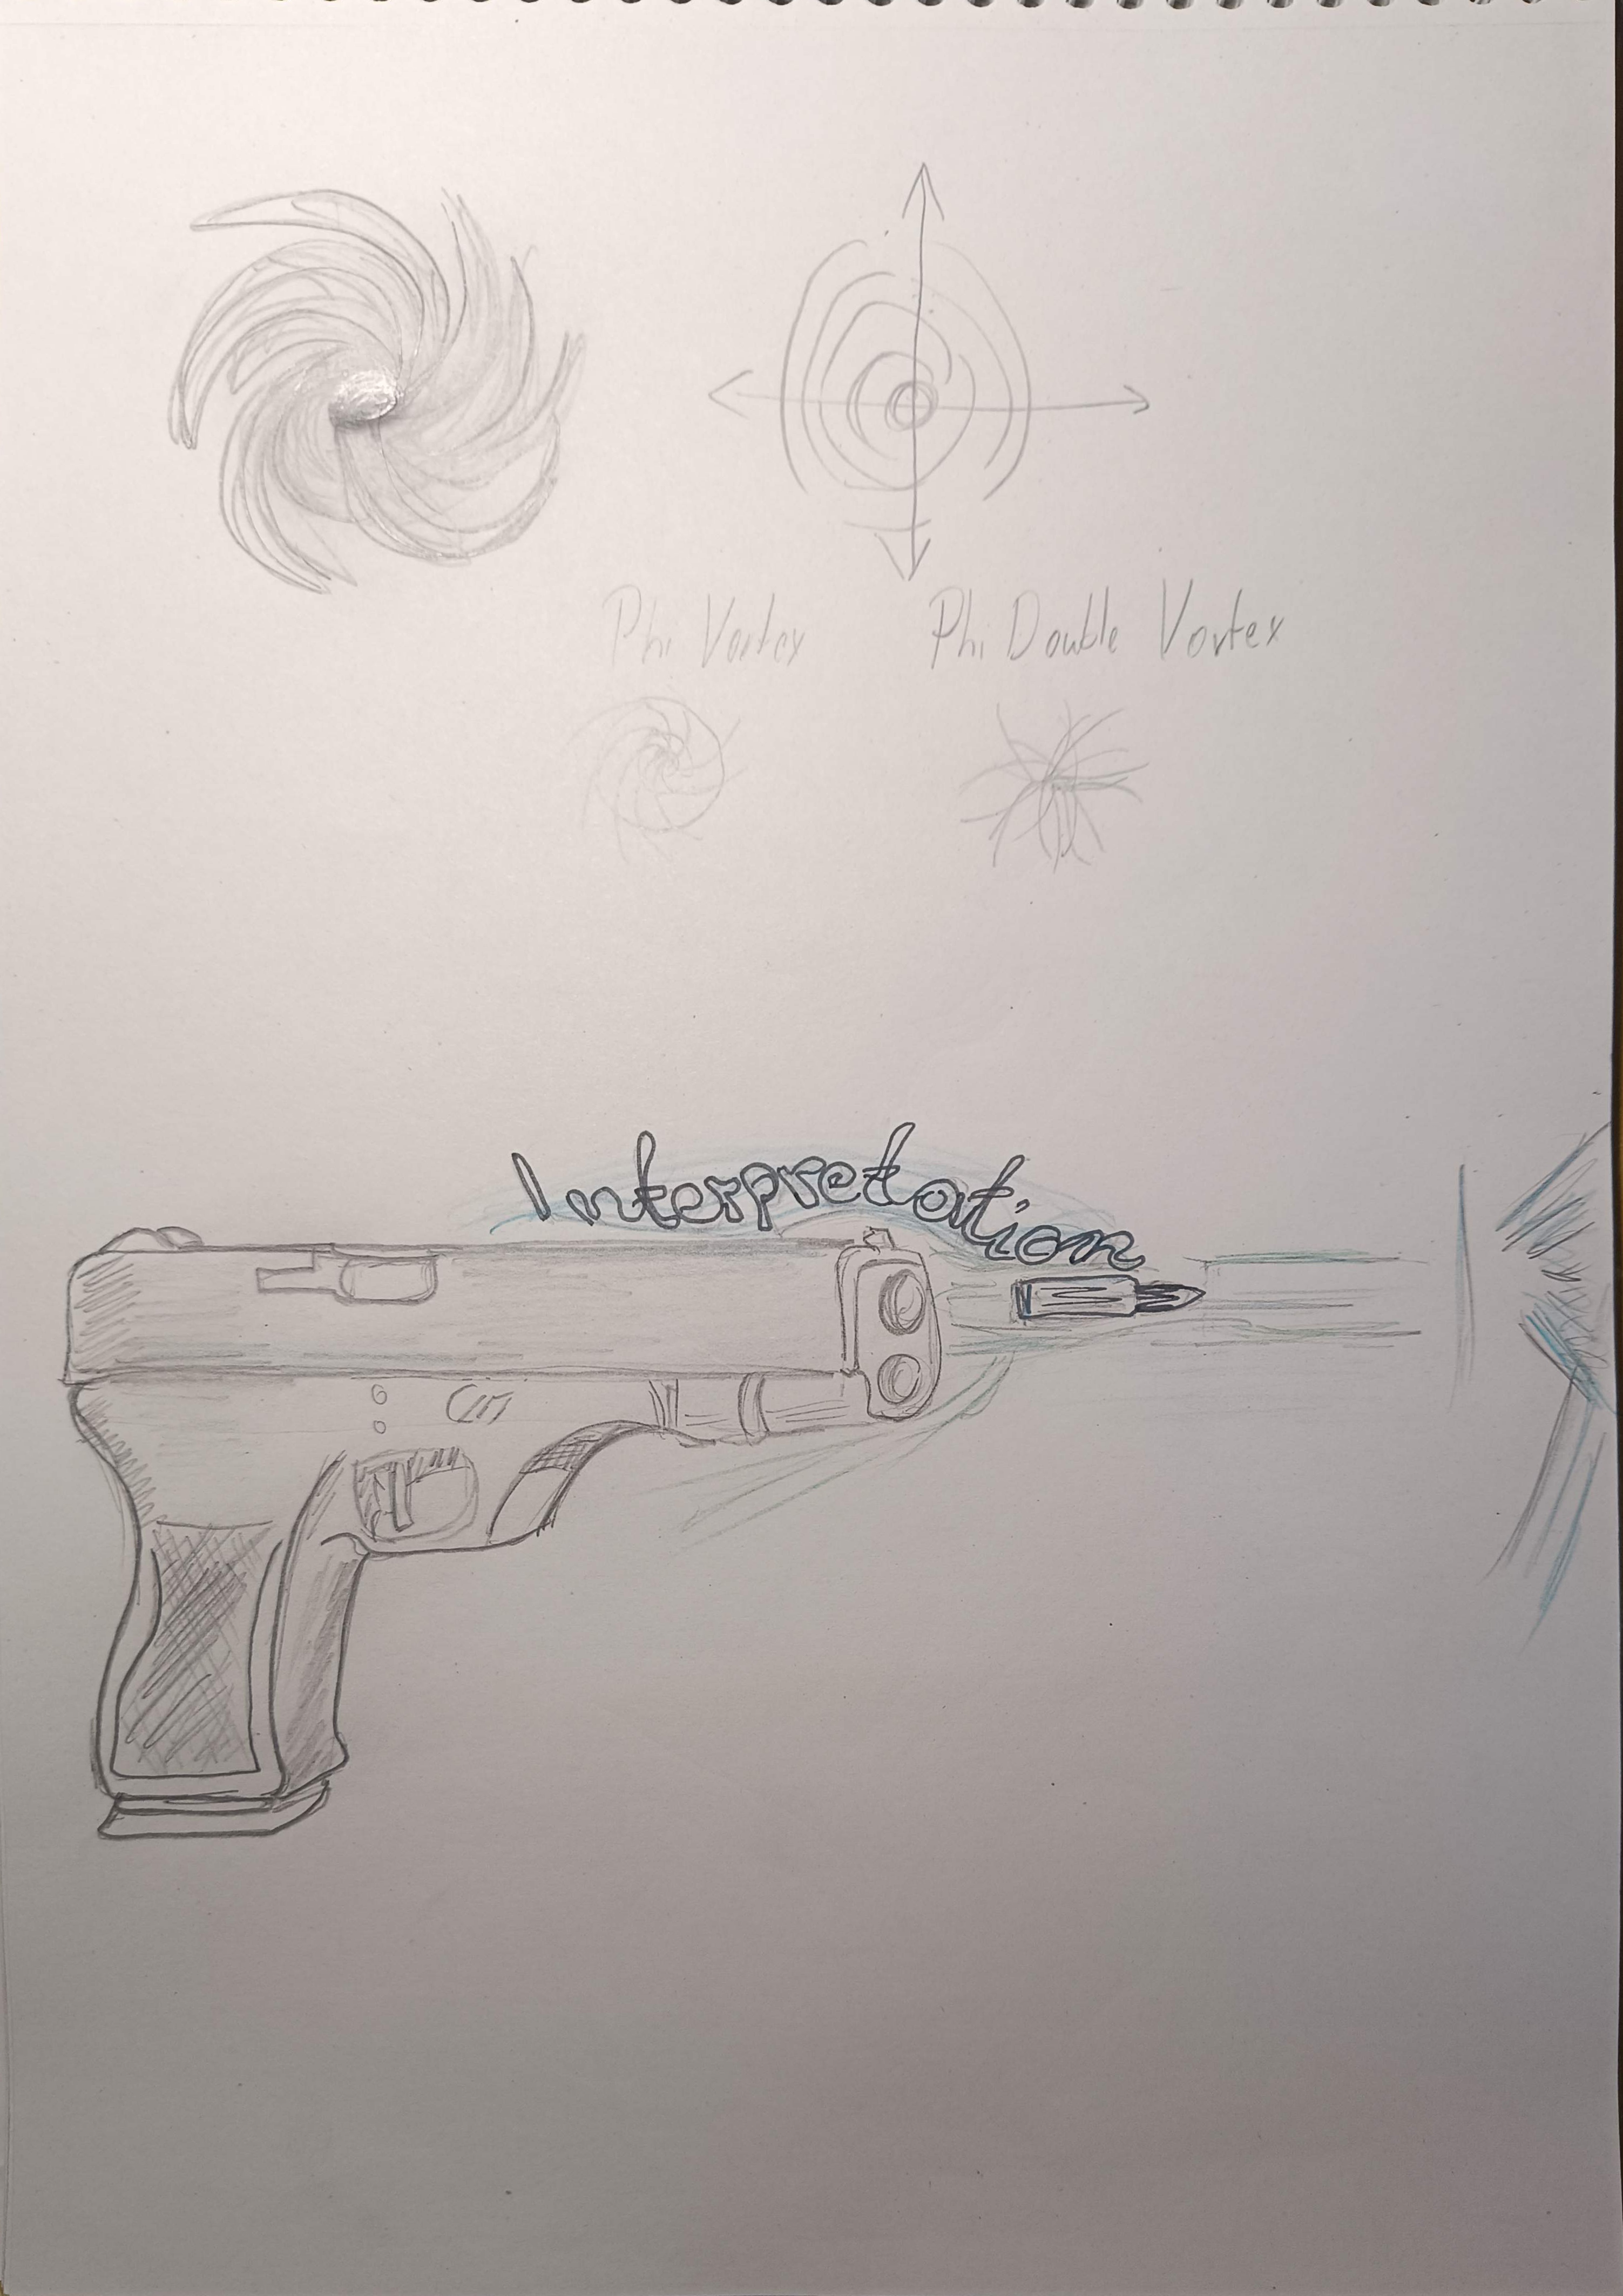 Phi Vortex
Phi Double Vortex
Interpretation